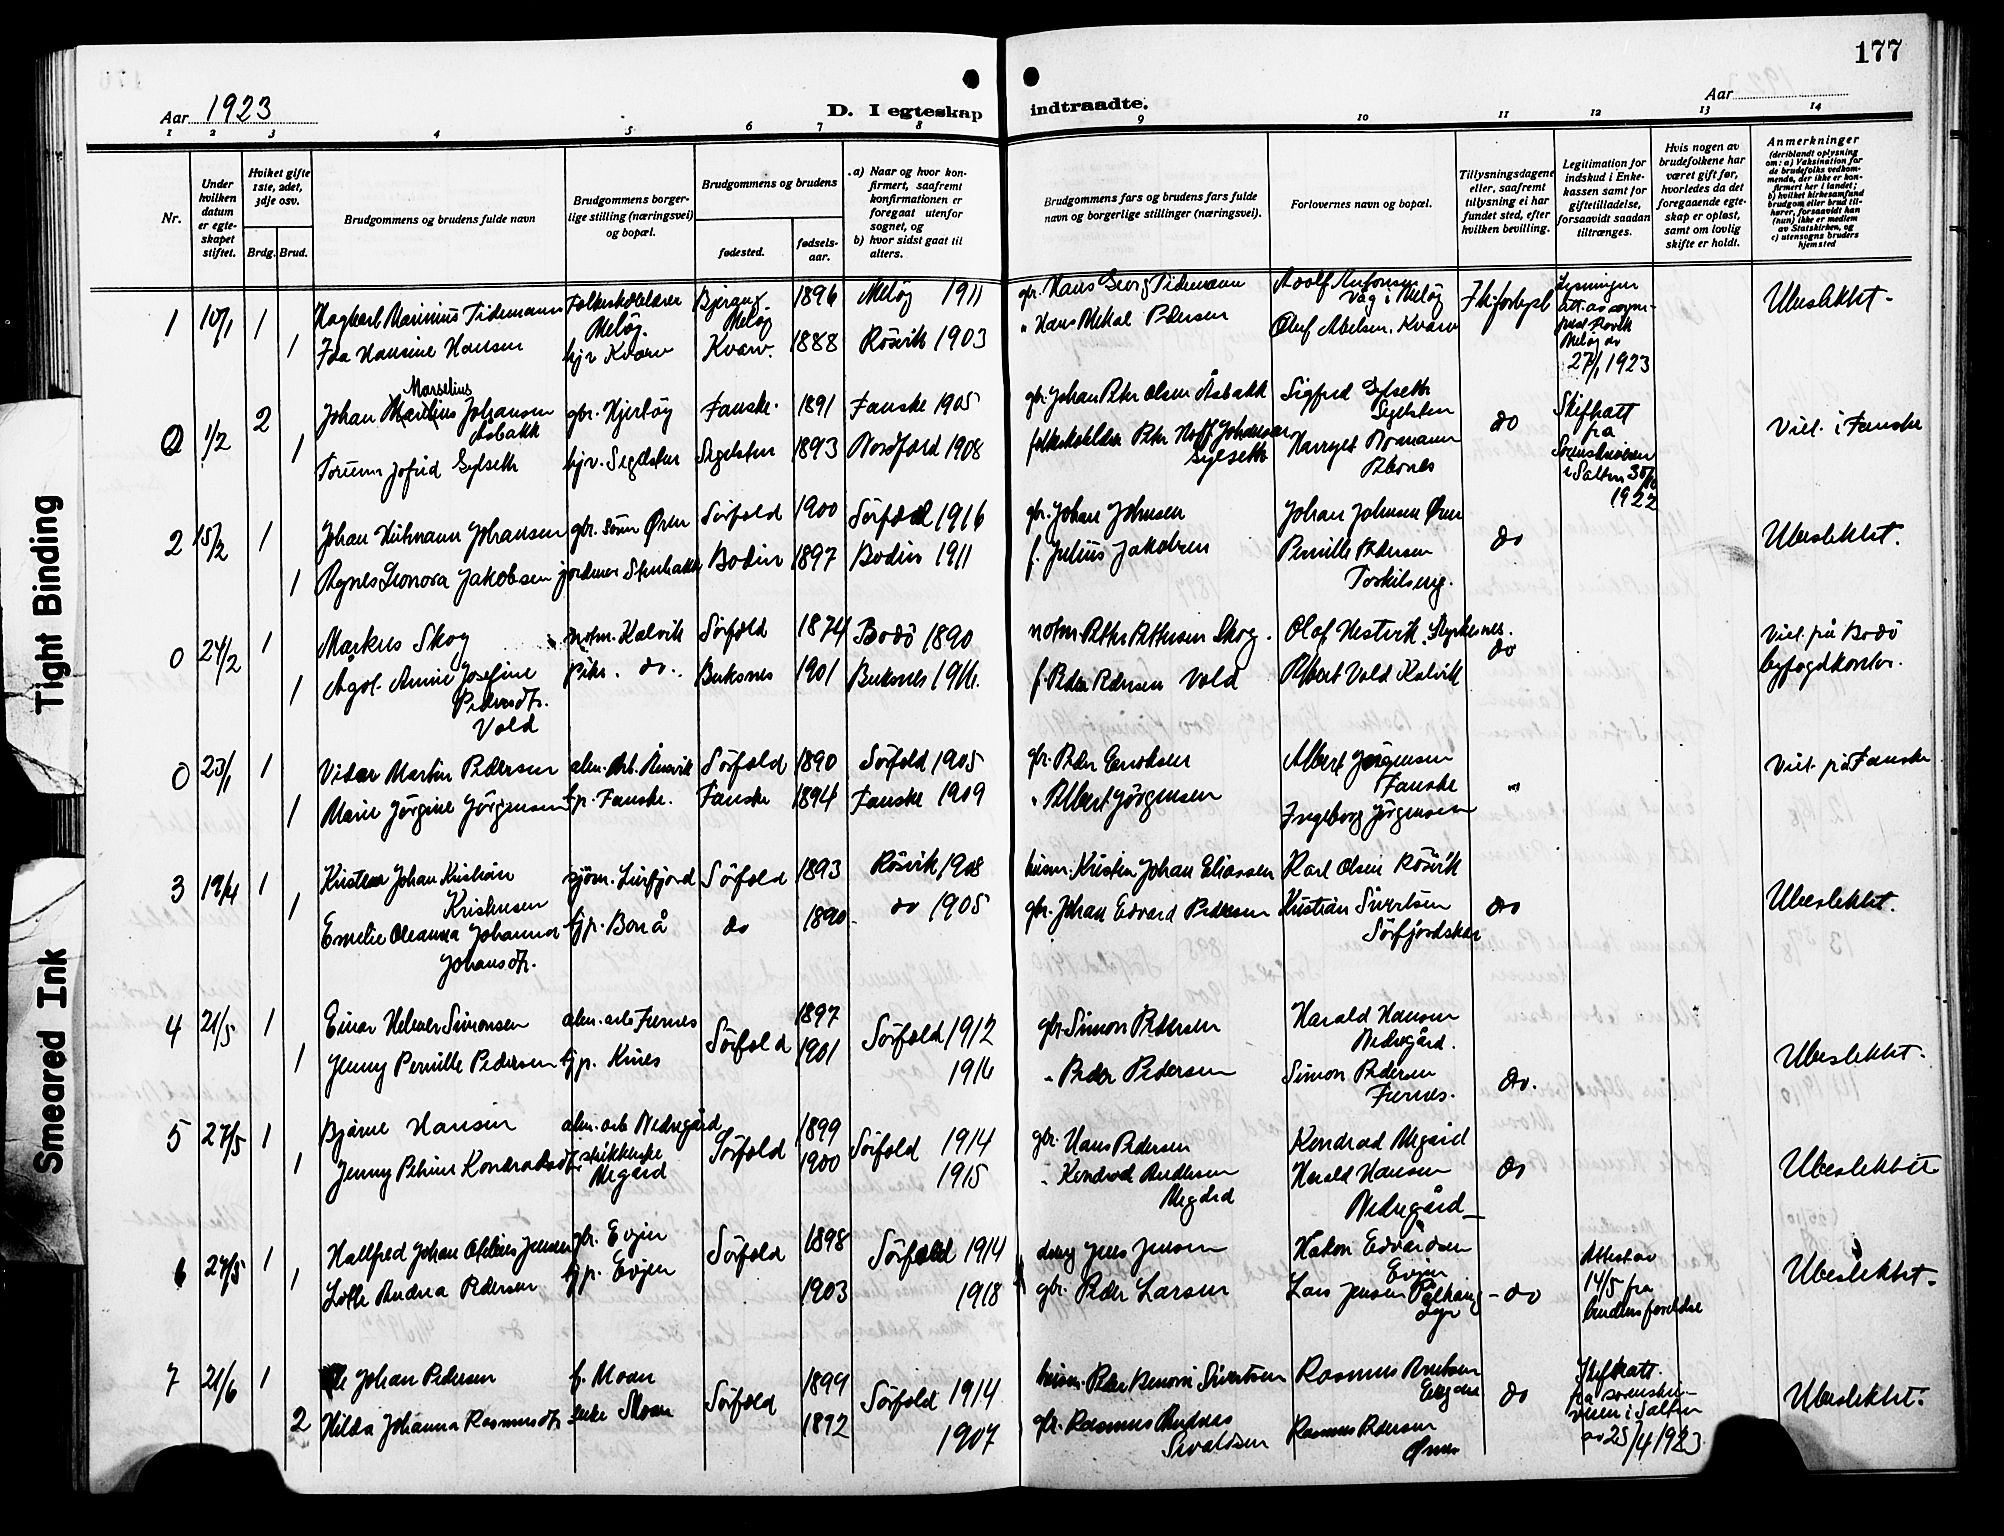 177
Aar 1923
D. I egteskap
indtraadte.
Aar
1 2 3 4 5 6 7 8 9 10 11 12 13 14
Nr.
Under hvilken datum er egteskapet stiftet.
Hviket gifte 1ste, 2det, 3dje osv.
Brdg. Brud.
Brudgommens og brudens fulde navn
Brudgommens borgerlige stilling (næringsvei) og bopæl.
Brudgommens og brudens
fødested.
fødselsaar.
a) Naar og hvor konfirmert, saafremt konfirmationen er foregaat utenfor sognet, og
b) hvor sidst gaat til alters.
Brudgommens fars og brudens fars fulde navn og borgerlige stillinger (næringsvei).
Forlovernes navn og bopæl.
Tillysningsdagene eller, saafremt tillysning ei har fundet sted, efter hvilken bevilling.
Legitimation for indskud i Enkekassen samt for giftetilladelse, forsaavidt saadan tiltrænges.
Hvis nogen av brudefolkene har været gift før, hvorledes da det foregaaende egteskap er opløst, samt om lovlig skifte er holdt.
Anmerkninger
(deriblandt oplysning om: a) Vaksination for de brudefolks vedkommende, der ikke er konfirmert her i landet; b) hvilket kirkesamfund brudgom eller brud tilhører, forsaavidt han (hun) ikke er medlem av Statskirken, og c) utensogns bruders hjemsted
1 10/1 1 Hagbart Marinius Tidemann Folkeskolelærer Meløy. 1896 Meløy 1911 gbr. Hans Georg Tidemann Adolf Antonsen Våg i Meløy Ubeslektet.
1 Ida Hansine Hansen hjv Kvarv Kvarv. 1888 Røsvik 1903 " Hans Mekal Pedersen Oluf Abelsen, Kvarv
27/1 1923
0 1/2 2 Johan Marselius Johansen Åsbakk gbr. Hjertøy Fauske. 1891 Fauske 1905 gbr. Johan Peter Olsen Åsbakk Sigfred Sylseth Sigelsten do Skifteatt fra Sorenskriveren i Salten 30/10 1922 Viet i Fauske
1 Torunn Jofrid Sylseth hjv. Sigelsten Sigelsten 1893 Nordfold 1908 Peter Hoff Johansen Sylseth
2 15/2 1 Johan Johansen gbr. sønn Øren Sørfold 1900 Sørfold 1916 gbr. Johan Johnsen Johan Johnsen Øren do Ubeslektet.
1 Agnes Leonora Jakobsen Bodin 1897 Bodin 1911 f. Julius Jakobsen Pernille Pedersen Torkilseng.
0 24/2 1 Markus Skog notm. Kalvik Sørfold 1874 Bodø 1890 notm. Petter Pettersen Skog. Olaf Nestvik, Styrkesnes. do Viet på Bodø byfogdkontor.
1 Agot. Annie Josefine Pedersdtr. Vold pike. do. Buksnes 1901 Buksnes 1916. f. Peder Pedersen Vold Albert Vold Kalvik
0 23/1 1 Vidar Martin Pedersen alm. Arb. Sørfold 1890 Sørfold 1905 gbr. Peder Enoksen Albert Jørgensen Fauske " Viet på Fauske
1 Marie Jørgine Jørgensen hjp. Fauske. Fauske 1894 Fauske 1909 " Albert Jørgensen Ingeborg Jørgensen
3 19/4 1 Kristian Johan Kristian Kristensen sjøm. Leirfjord Sørfold 1893 Røsvik 1908 husm. Kristen Johan Eliassen Karl Olsen Røsvik do Ubeslektet.
1 Emelie Oleanna Johanna Johansdtr. hjp. Bonå do 1890 do 1905 gbr. Johan Edvard Pedersen Kristian Sivertsen Sørfjordskar
4 21/5 1 Einar Helmer Simonsen alm. arb Fernes Sørfold 1897 Sørfold 1912 gbr. Simon Pedersen Harald Hansen Nedregård. do. Ubeslektet.
1 Jenny Pernille Pedersen hjp. Kines 1901 1916 " Peder Pedersen Simon Pedersen Fernes.
5 27/5 1 Bjarne Hansen alm. arb Nedregård Sørfold 1899 Sørfold 1914 gbr. Hans Pedersen Kondrad Megård do Ubeslektet
1 Jenny Petrine Kondradsdtr. Megård 1900 1915 " Kondrad Andersen Megård Harald Hansen Nedregård
6 27/5 1 Hallfred Johan Jensen gbr. Evjen Sørfold 1898 Sørfold 1914 Jens Jensen Hakon Edvardsen Evjen do Attest av 14/5 fra brudens foreldre Ubeslektet.
1 Lotte Andrea Pedersen hjp. Evjen 1903 1918 gbr. Peder Larsen Lars Jensen
7 21/6 1 Ole Johan Pedersen f. Moan Sørfold 1899 Sørfold 1914 husm. Peder Benoni Sivertsen Rasmus do Skifteatt. fra sorenskriveren i Salten av 25/4 1923 Ubeslektet.
2 Hilda Johanna Rasmusdtr. enke Moan 1892 1907 gbr. Rasmus Andreas Sivaldsen Rasmus Pedersen Øines
Tight Binding
Smeared Ink